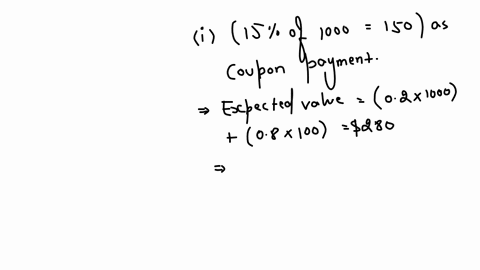 (i) (15% of 1000 = 150) as
Coupon payment.
⇒ Expected value = (0.2 × 1000)
+ (0.8 × 100) = $280
⇒